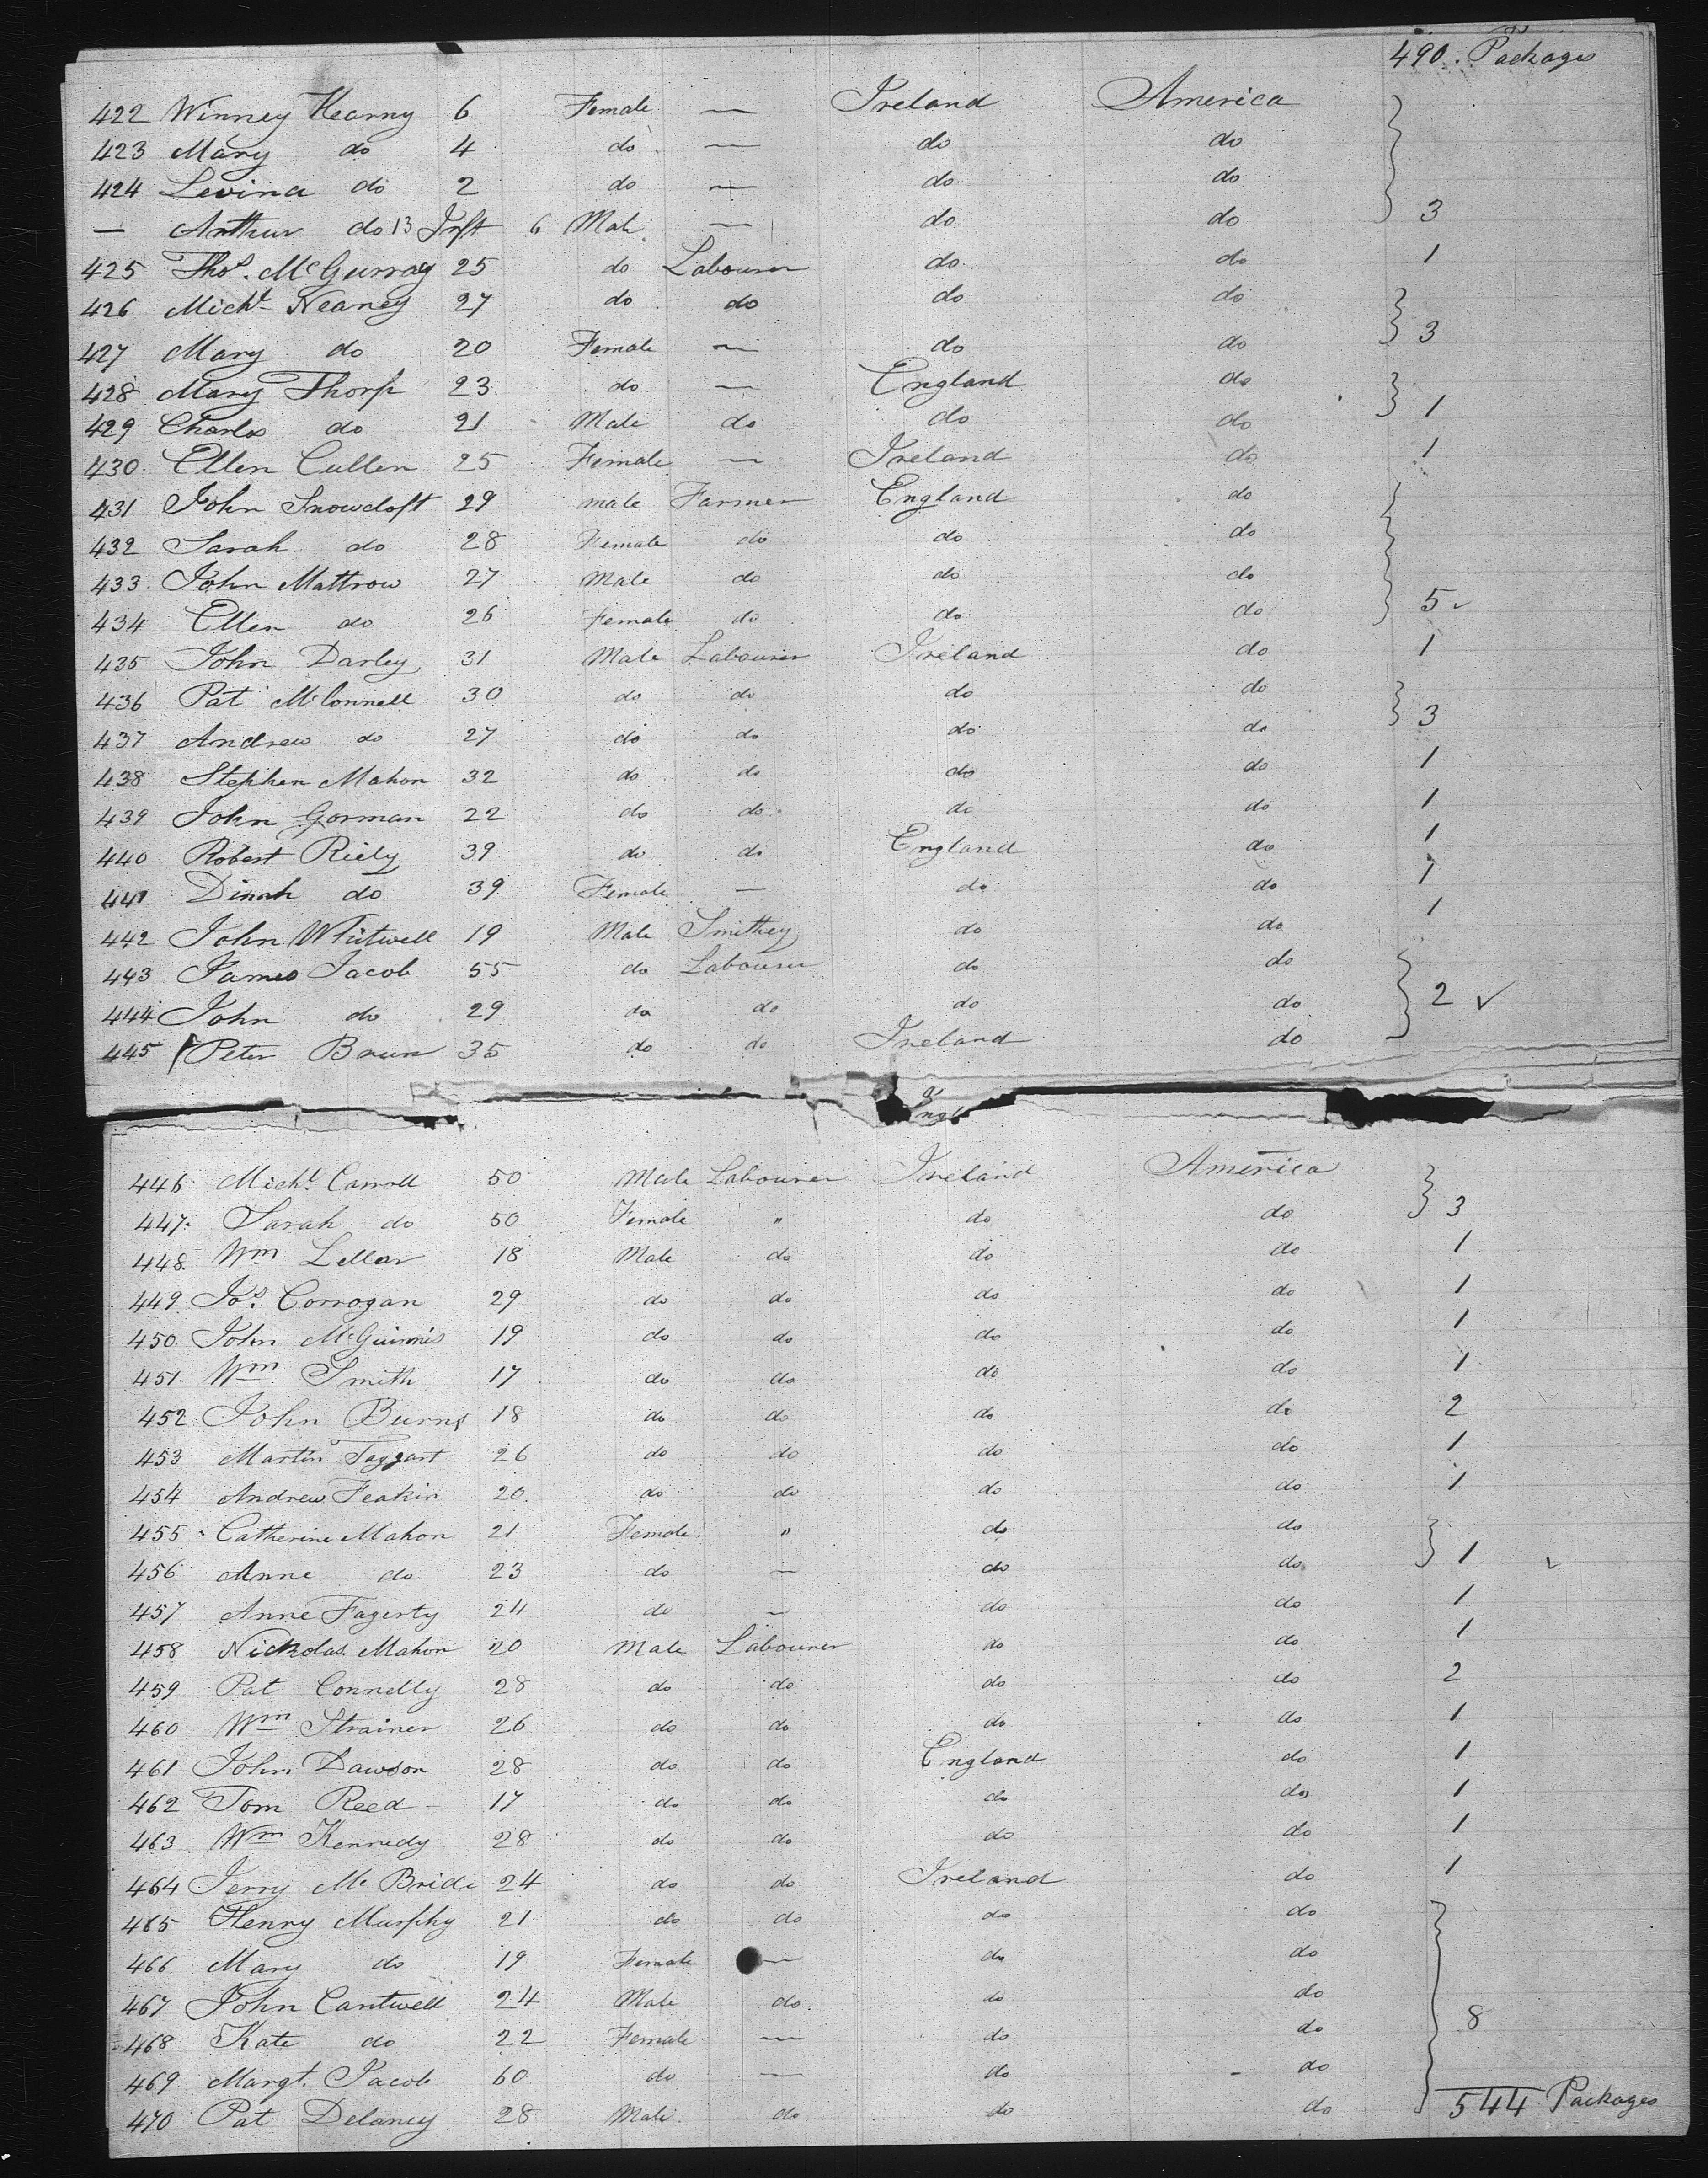 490. Packages
422 Winney Kearny 6 Female — Ireland America
423 Mary do 4 do — do do
424 Levina do 2 do — do do
— Arthur do 13 Inft 6 Male — do do 3
425 Thos. McGurray 25 do Labourer do do 1
426 Michl Neaney 27 do do do do
427 Mary do 20 Female — do do 3
428 Mary Thorp 23 do — England do
429 Charles do 21 Male do do do 1
430 Ellen Cullen 25 Female — Ireland do 1
431 John Snowcloft 29 male Farmer England do
432 Sarah do 28 Female do do do
433. John Mattrow 27 Male do do do
434 Ellen do 26 Female do do do 5 ✓
435 John Darley 31 Male Labourer Ireland do 1
436 Pat McConnell 30 do do do do
437 Andrew do 27 do do do do 3
438 Stephen Mahon 32 do do do do 1
439 John Gorman 22 do do do do 1
440 Robert Riely 39 do do England do 1
441 Dinah do 39 Female — do do 1
442 John Whitwell 19 Male Smithey do do 1
443 James Jacob 55 do Labourer do do
444 John do 29 do do do do 2 ✓
445 Peter Brun 35 do do Ireland do
446 Michl. Carroll 50 Male Labourer Ireland America
447. Sarah do 50 Female " do do 3
448. Wm Lellar 18 Male do do do 1
449. Jos. Corrogan 29 do do do do 1
450. John McGuinnis 19 do do do do 1
451. Wm Smith 17 do do do do 1
452 John Burns 18 do do do do 2
453 Martin Taggart 26 do do do do 1
454 Andrew Feakin 20. do do do do 1
455 Catherine Mahon 21 Female " do do
456 Anne do 23 do — do do 1 ✓
457 Anne Fagerty 24 do — do do 1
458 Nicholas Mahon 20 Male Labourer do do 1
459 Pat Connelly 28 do do do do 2
460 Wm Strainer 26 do do do do 1
461 John Dawson 28 do do England do 1
462 Tom Reed 17 do do do do 1
463 Wm Kennedy 28 do do do do 1
464 Jerry Mc Bride 24 do do Ireland do 1
465 Henry Murphy 21 do do do do
466 Mary do 19 Female — do do
467 John Cantwell 24 Male do do do
468 Kate do 22 Female — do do 8
469 Margt. Jacob 60 do — do do
470 Pat Delaney 28 Male. do do do 544 Packages